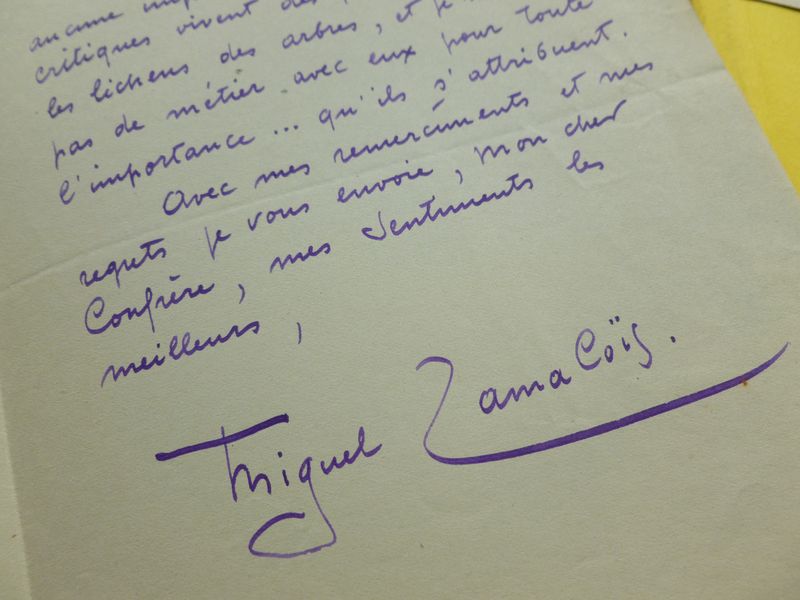 aucune imp
critiques vivent des
les lichens des arbres, et je
pas de métier avec eux pour toute
l'importance... qu'ils s'attribuent.
Avec mes remerciments et mes
regrets je vous envoie, mon cher
Confrère, mes sentiments les
meilleurs,
Miguel Zamacoïs.